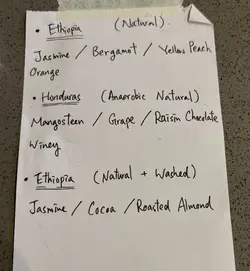 • Ethiopia (Natural).
Jasmine / Bergamot / Yellow Peach
Orange
• Honduras (Anaerobic Natural)
Mangosteen / Grape / Raisin Chocolate
Winey
• Ethiopia (Natural + Washed)
Jasmine / Cocoa / Roasted Almond